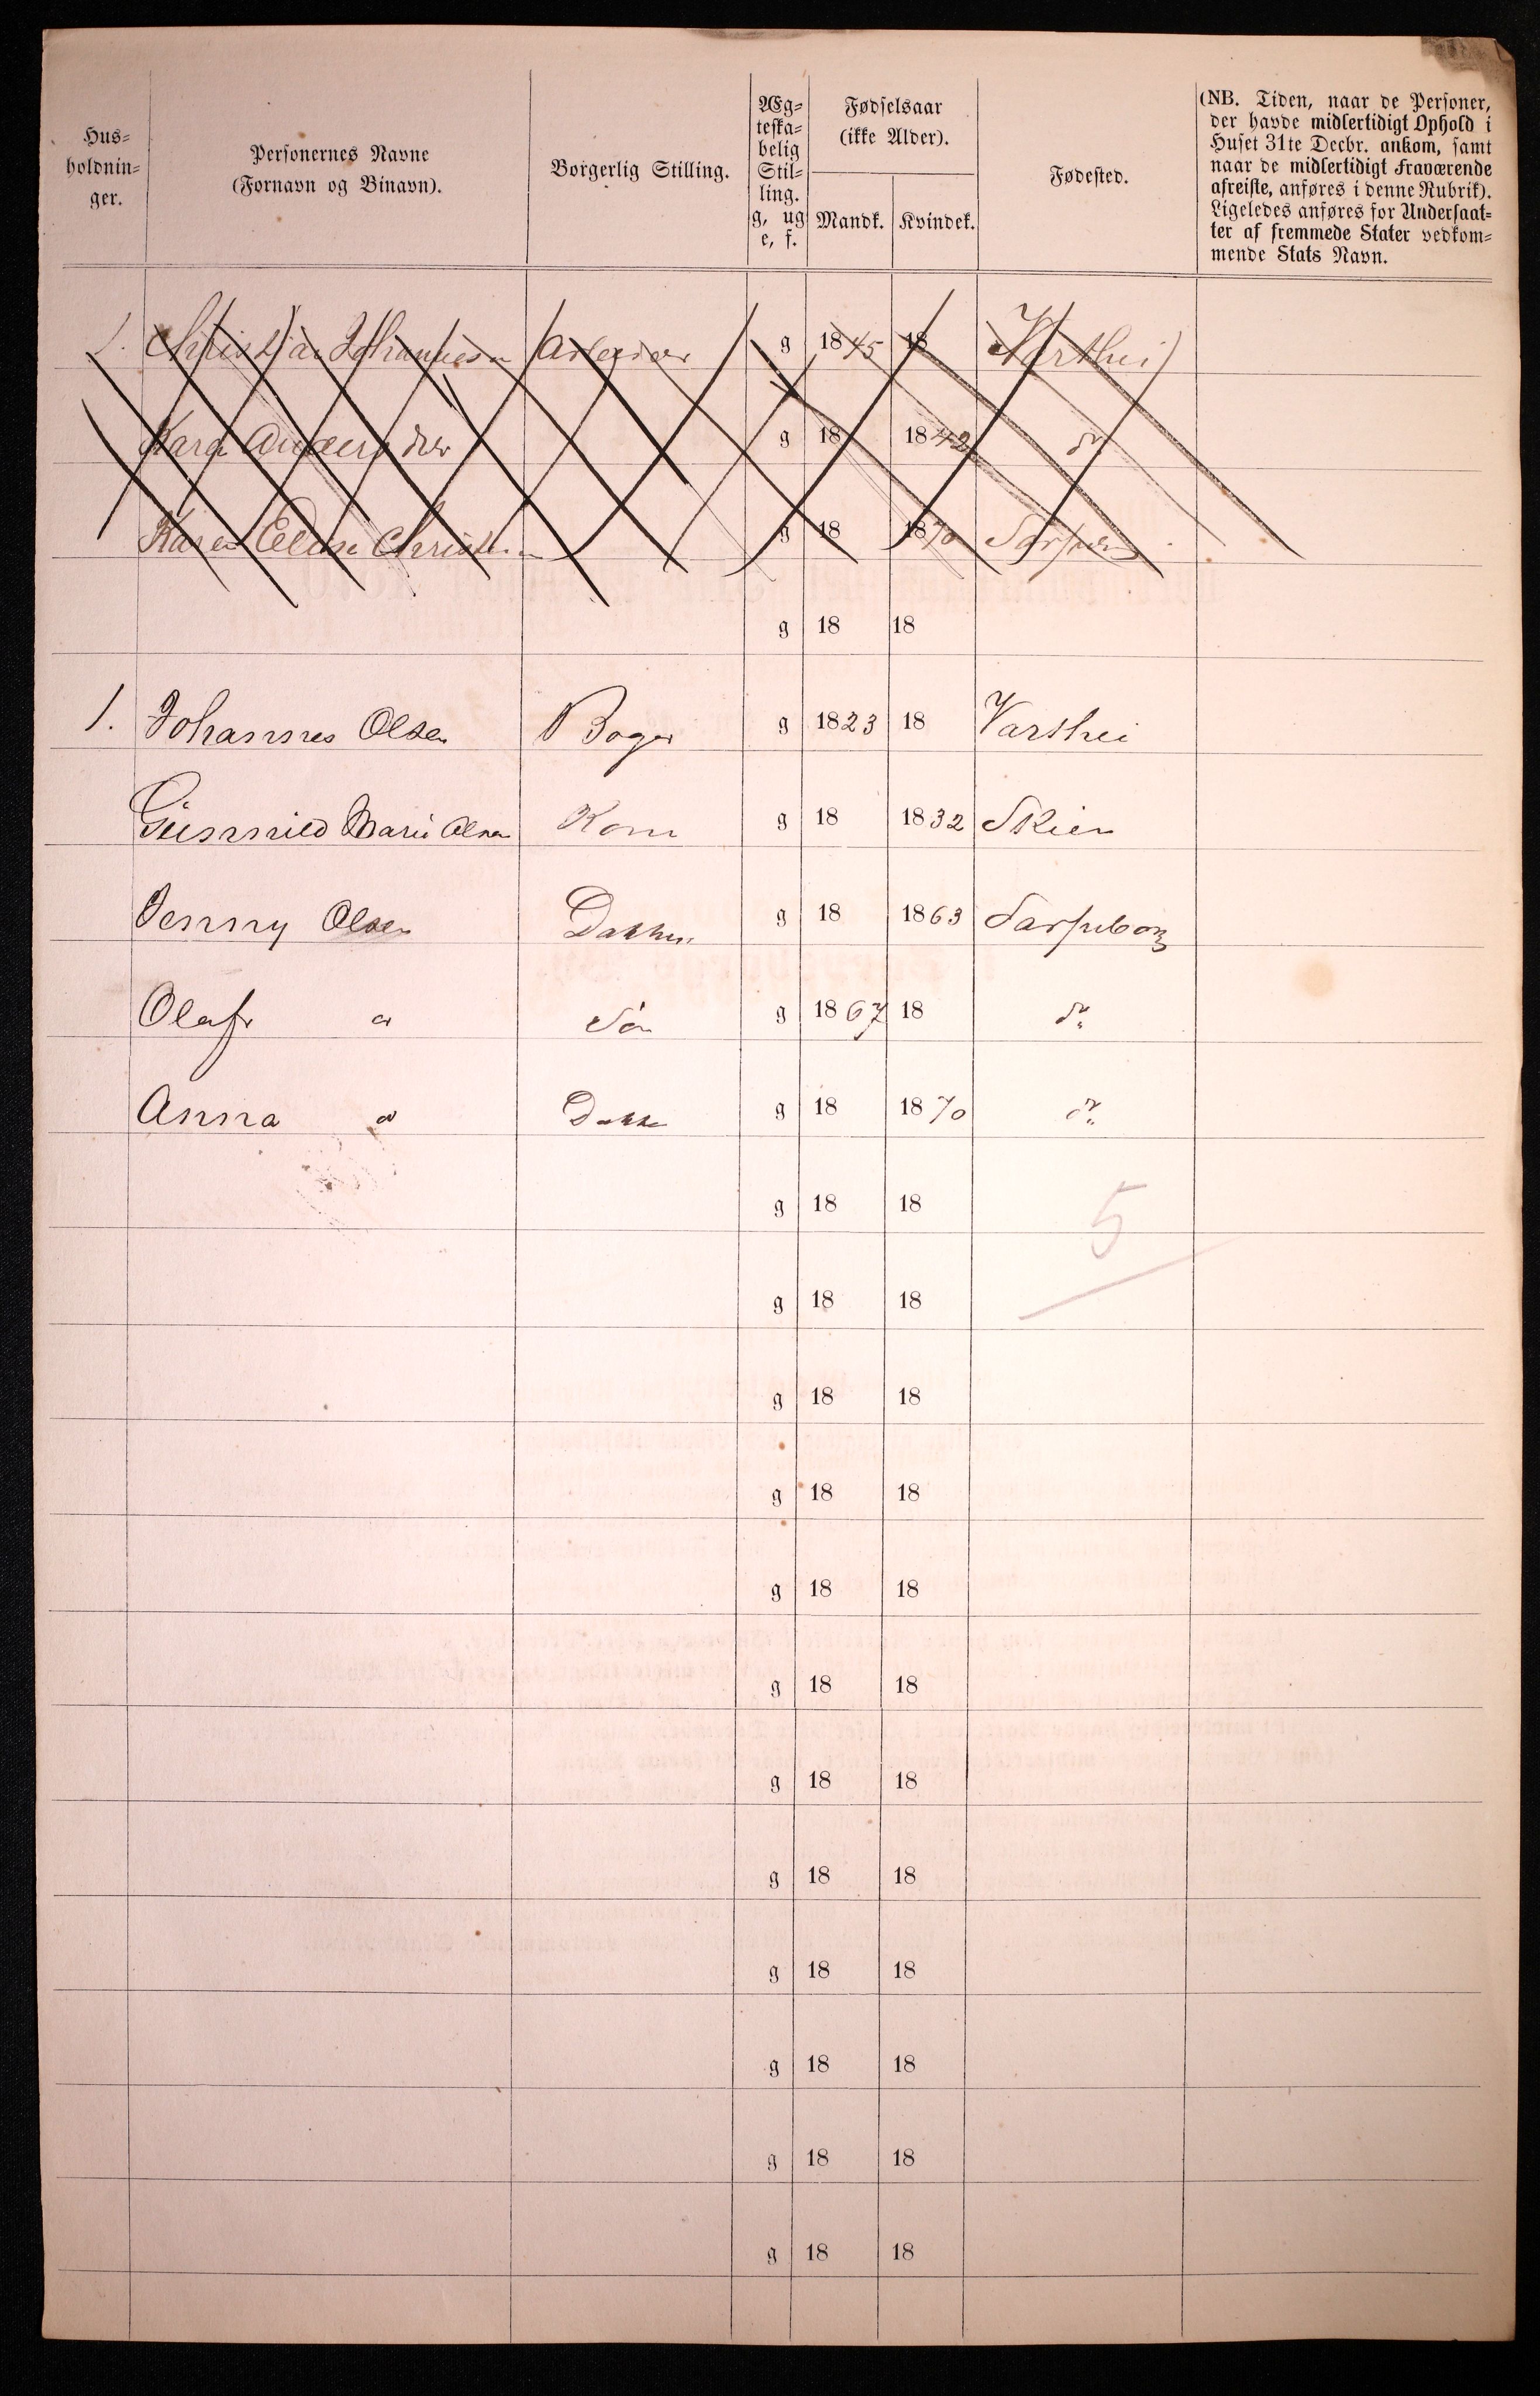 Hus-
holdnin-
ger.
Personernes Navne
(Fornavn og Binavn).
Borgerlig Stilling.
Æg-
teska-
belig
Stil-
ling.
g, ug
e, f.
Fødselsaar
(ikke Alder).
Mandk. Kvindek.
Fødested.
(NB. Tiden, naar de Personer,
der havde midlertidigt Ophold i
Huset 31te Decbr. ankom, samt
naar de midlertidigt Fraværende
afreiste, anføres i denne Rubrik).
Ligeledes anføres for Undersaat-
ter af fremmede Stater vedkom-
mende Stats Navn.
1. Christian Johannesen Arbeider g 1845 18
Kara Anders g 18 1842 do
Karen Elise g 18 1870
g 18 18
1. Johannes Olsen Bager g 1823 18 Varthei
Gunnild Marie Olsen Kone g 18 1832 Skien
Jenny Olsen g 18 1863 Sarpsborg
Olaf do Søn g 1867 18 do
Anna do g 18 1870 do
g 18 18
5
g 18 18
g 18 18
g 18 18
g 18 18
g 18 18
g 18 18
g 18 18
g 18 18
g 18 18
g 18 18
g 18 18